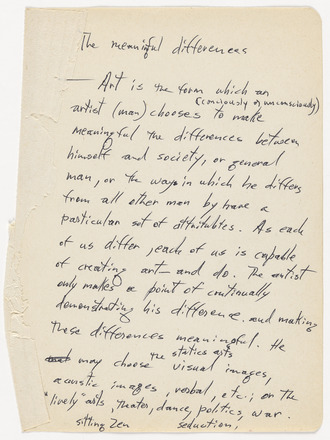 The meaningful differences
Art is the form which an
(consciously or unconsciously)
artist (man) chooses to make
meaningful the differences between
himself and society, or general
man, or the ways in which he differs
from all other men by have a
particular set of attributes. As each
of us differ, each of us is capable
of creating art — and do. The artist
only makes a point of continually
demonstrating his difference and making
these differences meaningful. He
the statics arts
may choose visual images,
acoustic images, verbal, etc., or the
"lively" arts, theater, dance, politics, war.
sitting Zen seduction,